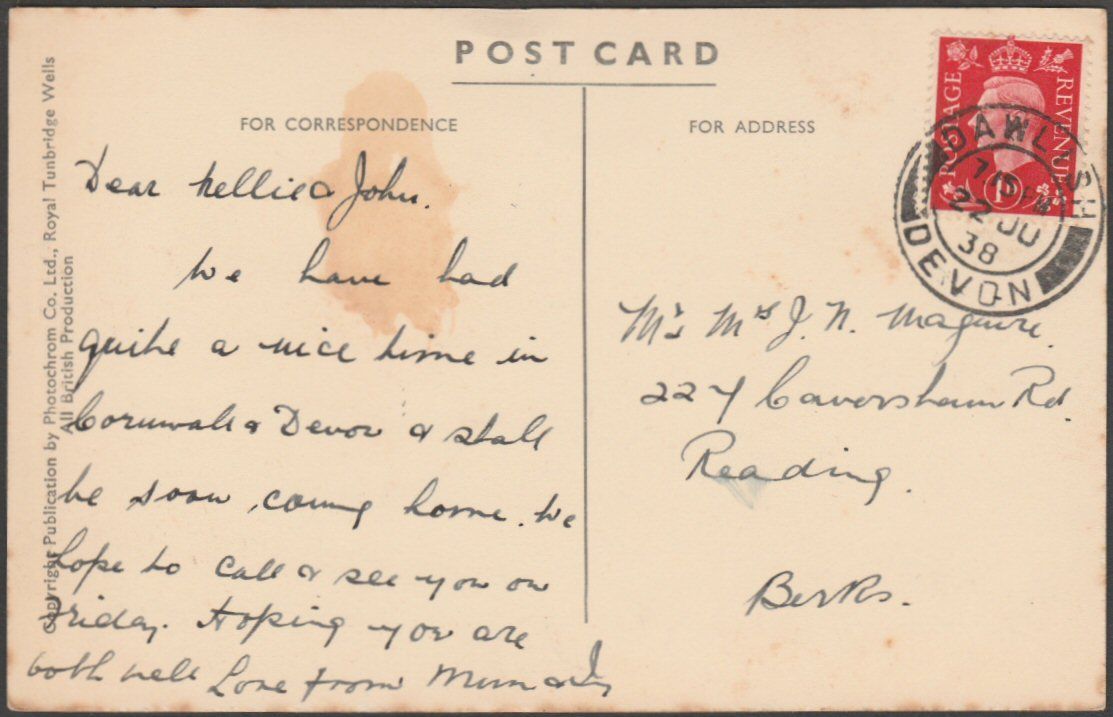 POST CARD
FOR CORRESPONDENCE
FOR ADDRESS
Copyright Publication by Photochrom Co. Ltd., Royal Tunbridge Wells
All British Production
POSTAGE REVENUE
1D
DAWLISH
7 15 PM
22 JU
38
DEVON
Dear Nellie & John.
We have had
quite a nice time in
Cornwall & Devon & shall
be soon coming home. We
hope to call & see you on
Friday. Hoping you are
both well Love from Mum &
Mr & Mrs J. N. Maguire.
227 Caversham Rd.
Reading.
Berks.